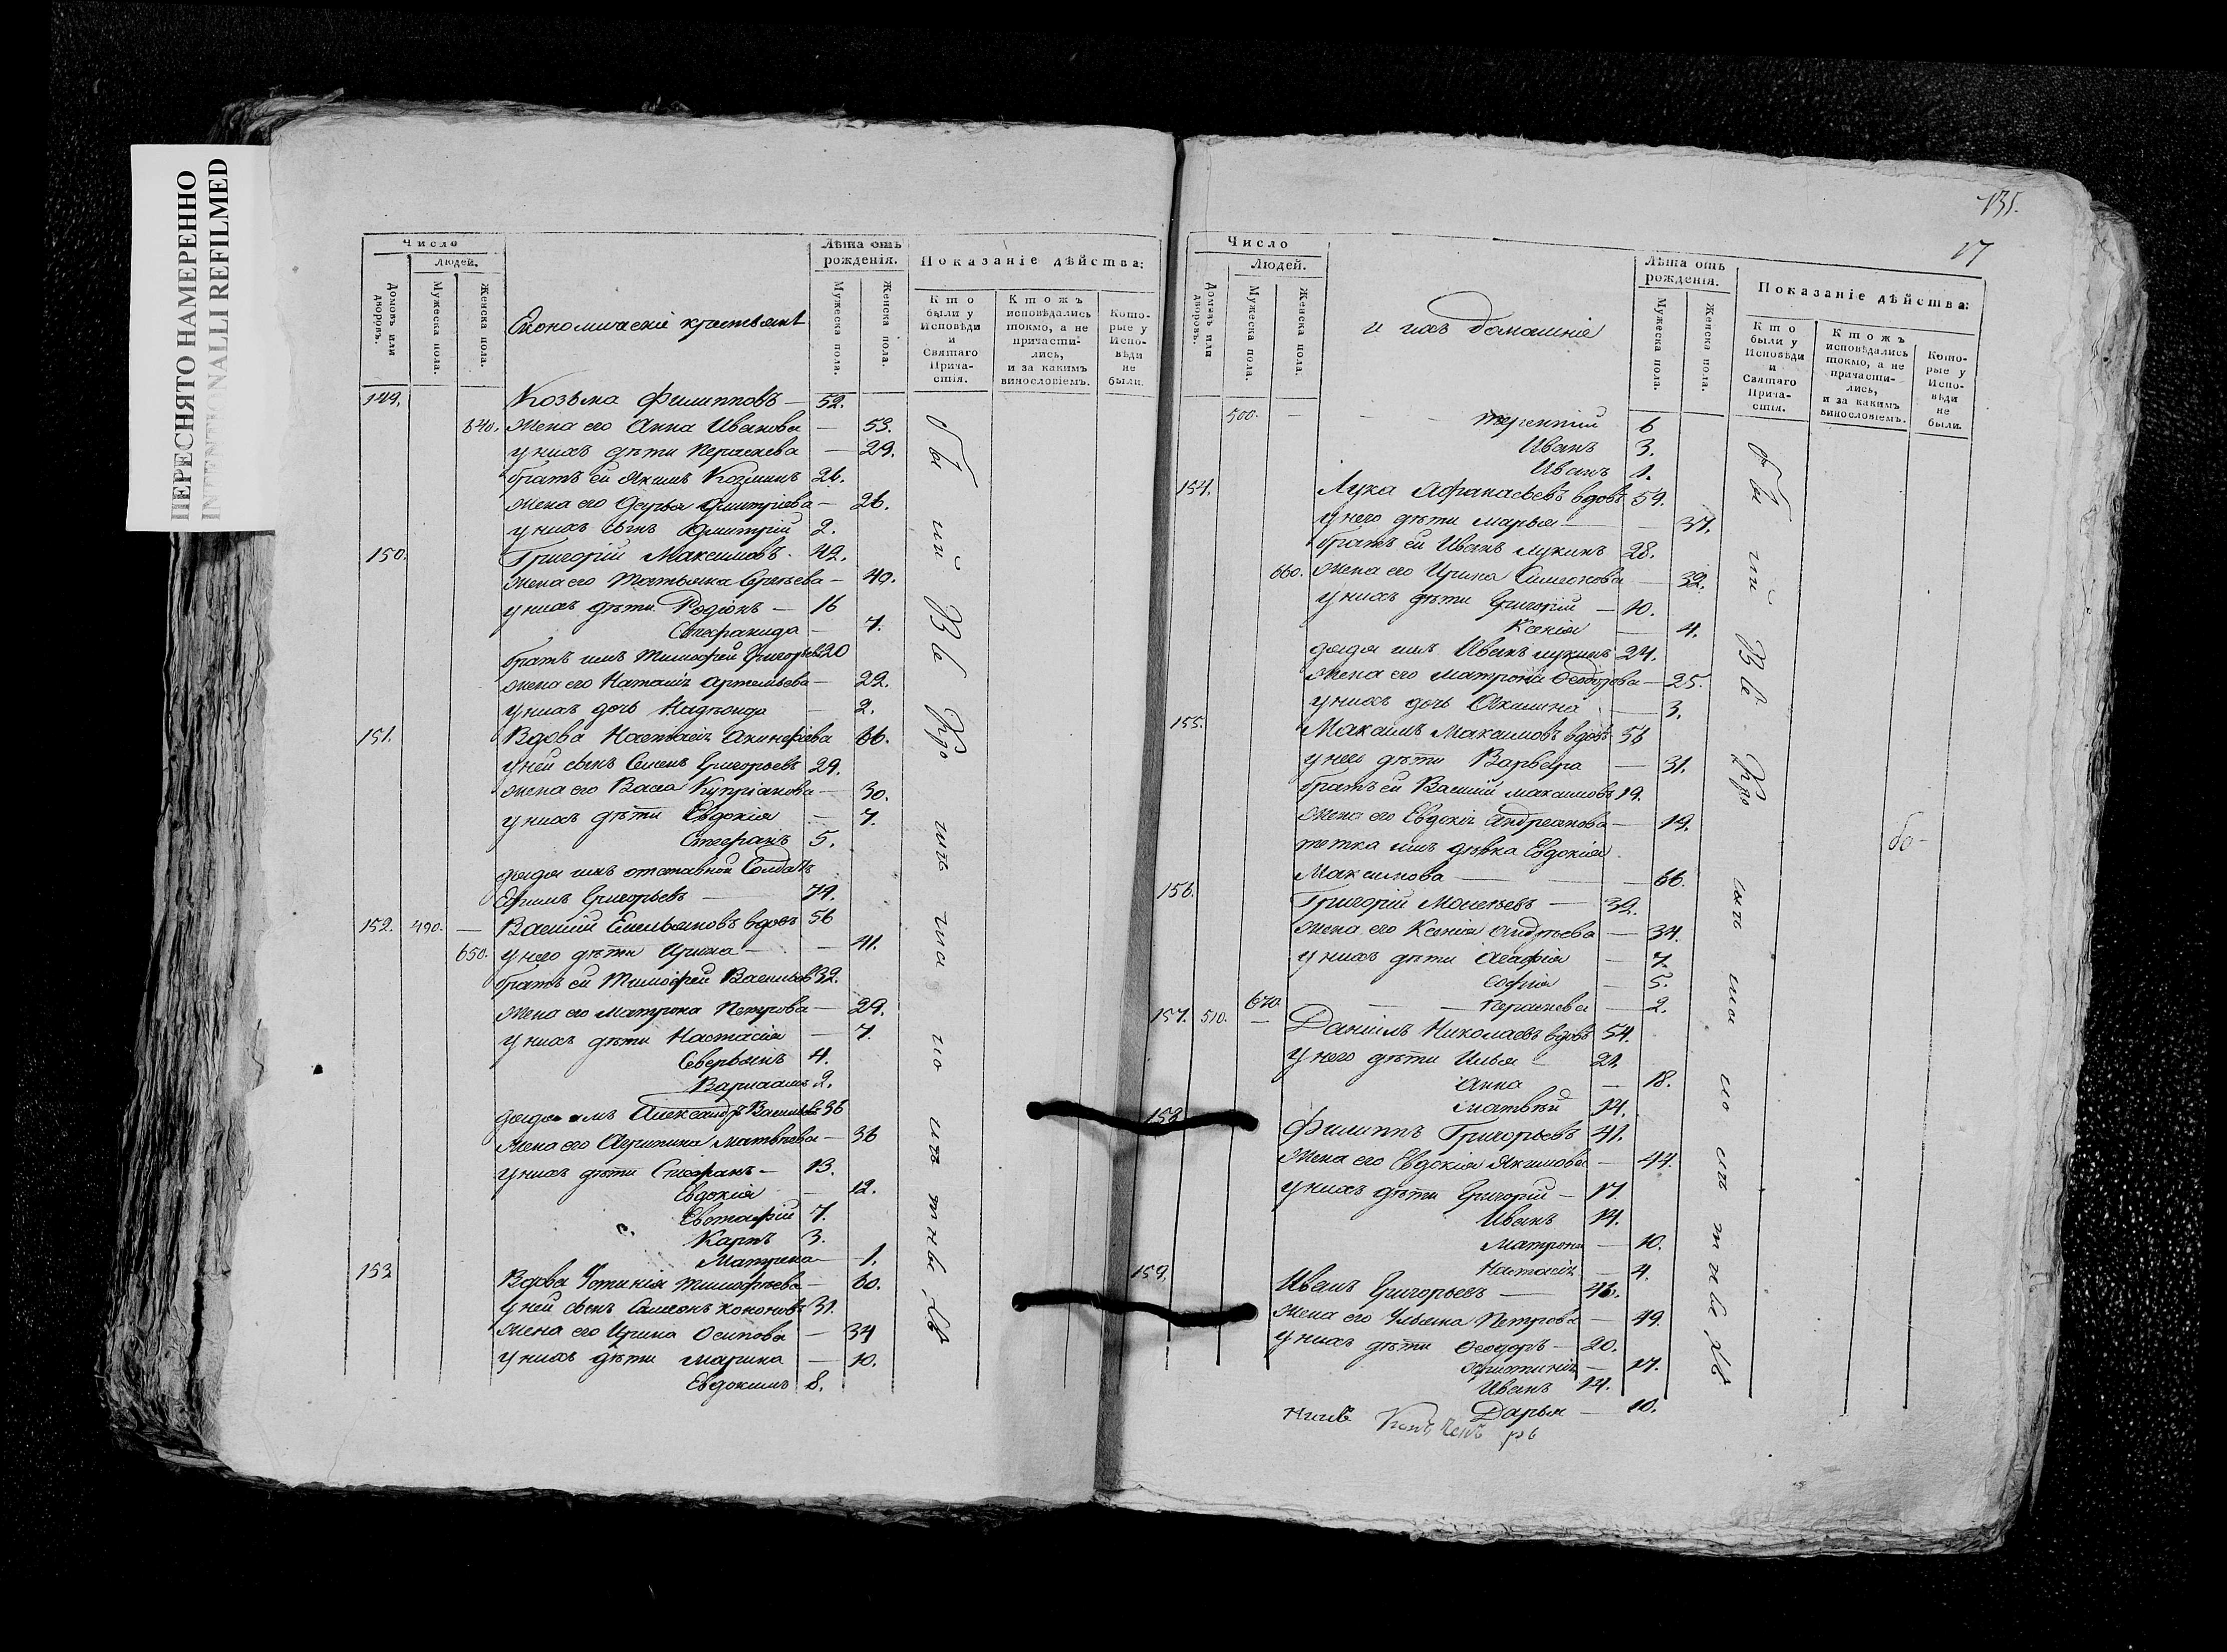 ПЕРЕСНЯТО НАМЕРЕННО
INTENTIONALLI REFILMED
Число
людей.
Домовъ или дворовъ.
Мужеска пола.
Женска пола.
Економическіе крестьяне
Лѣта отъ рожденія.
Мужеска пола.
Женска пола.
Показаніе дѣйства:
Кто были у Исповѣди и Святаго Прича-стія.
Ктожъ исповѣдались токмо, а не причасти-лись, и за какимъ винословіемъ.
Кото-рые у Испо-вѣди не были.
149. Козьма Филипповъ — 52.
640. жена его Анна Иванова — 53.
у нихъ дѣти — 29.
братъ ей Якимъ Козминъ 26.
жена его Дарья Дмитріева — 26.
у нихъ сынъ Дмитрій 2.
150. Григорій Максимовъ. 42.
жена его Татьяна Сергѣева — 40.
у нихъ дѣти Родіонъ — 16
Стефанида — 7.
братъ имъ Тимофей Григорьевъ 20
жена его Наталія Артемьева — 22.
у нихъ дочь Надежда — 2.
151. Вдова Настасія Акинфіева 66.
у ней сынъ Семенъ Григорьевъ 29.
жена его Васса Купріянова — 30.
у нихъ дѣти Евдокія — 7.
Стефанъ 5.
дядя имъ отставной Солдатъ
Ефимъ Григорьевъ — 79.
152. 490. — Василій Емельяновъ вдовъ 56
650. у него дѣти Ирина — 41.
братъ ей Тимофей Васильевъ 32.
жена его Матрона Петрова — 29.
у нихъ дѣти Настасія — 7.
Северьянъ 4.
Варлаамъ 2.
дядя имъ Александръ Васильевъ 36
жена его Агрипина Матвѣева — 36
у нихъ дѣти Стефанъ — 13.
Евдокія — 12.
Евстафій 7.
Карпъ 3.
Матрона — 1.
153. Вдова Устинія Тимофѣева — 60.
у ней сынъ Симеонъ Кононовъ 31.
жена его Ирина Осипова — 34
у нихъ дѣти Марина — 10.
Евдокимъ 8.
131.
17
Число
Людей.
Домовъ или дворовъ.
Мужеска пола.
Женска пола.
и ихъ домашніе
Лѣта отъ рожденія.
Мужеска пола.
Женска пола.
Показаніе дѣйства:
Кто были у Исповѣди и Святаго Прича-стія.
Ктожъ исповѣдались токмо, а не причасти-лись, и за какимъ винословіемъ.
Кото-рые у Испо-вѣди не были.
500. — — Терентій 6
Иванъ 3.
Иванъ 1.
154. Лука Афанасьевъ вдовъ 59.
у него дѣти Марья — 37.
братъ ей Иванъ Лукинъ 28.
660. жена его Ирина Симеонова — 32.
у нихъ дѣти Григорій — 10.
Ксенія — 4.
дядя имъ Иванъ Лукинъ 24.
жена его Матрона Феодорова — 25.
у нихъ дочь Акилина — 3.
155. Максимъ Максимовъ вдовъ 56
у него дѣти Варвара — 31.
братъ ей Василій Максимовъ 19.
жена его Евдокія Андреянова — 19.
тетка имъ дѣвка Евдокія
Максимова — 66.
бо-
156. Григорій Моисеевъ — 32.
жена его Ксенія Андреева — 34.
у нихъ дѣти Агафія — 7.
Софія — 5.
670 — — 2.
157. 510. — Даніилъ Николаевъ вдовъ 54.
у него дѣти Илья — 24
Анна — 18.
Матвѣй 14.
158. Филиппъ Григорьевъ 41.
жена его Евдокія Якимова — 44.
у нихъ дѣти Григорій — 17.
Иванъ 14.
Матрона — 10.
Настасія — 4.
159. Иванъ Григорьевъ — 46.
жена его Ульяна Петрова — 49.
у нихъ дѣти Феодоръ — 20.
Христинія — 17.
Иванъ 14.
Дарья — 10.